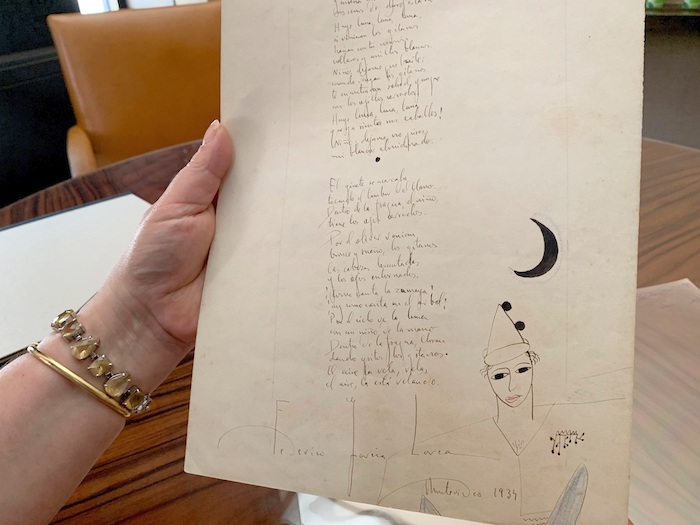 sus senos de duro estaño
Huye luna, luna, luna,
si vinieran los gitanos
harían con tu corazón
collares y anillos blancos
Niño, déjame que baile;
cuando vengan los gitanos
te encontrarán sobre el yunque
con los ojillos cerrados
Huye luna, luna, luna
que ya siento sus caballos!
Niño, déjame, no pises
mi blancor almidonado.
El jinete se acercaba
tocando el tambor del llano.
Dentro de la fragua, el niño,
tiene los ojos cerrados.
Por el olivar venían,
bronce y sueño, los gitanos
las cabezas levantadas
y los ojos entornados.
¡Como canta la zumaya!
¡ay como canta en el árbol!
Por el cielo va la luna
con un niño de la mano
Dentro de la fragua, lloran
dando gritos los gitanos.
El aire la vela, vela,
el aire, la está velando.
Federico García Lorca
Montevideo 1934